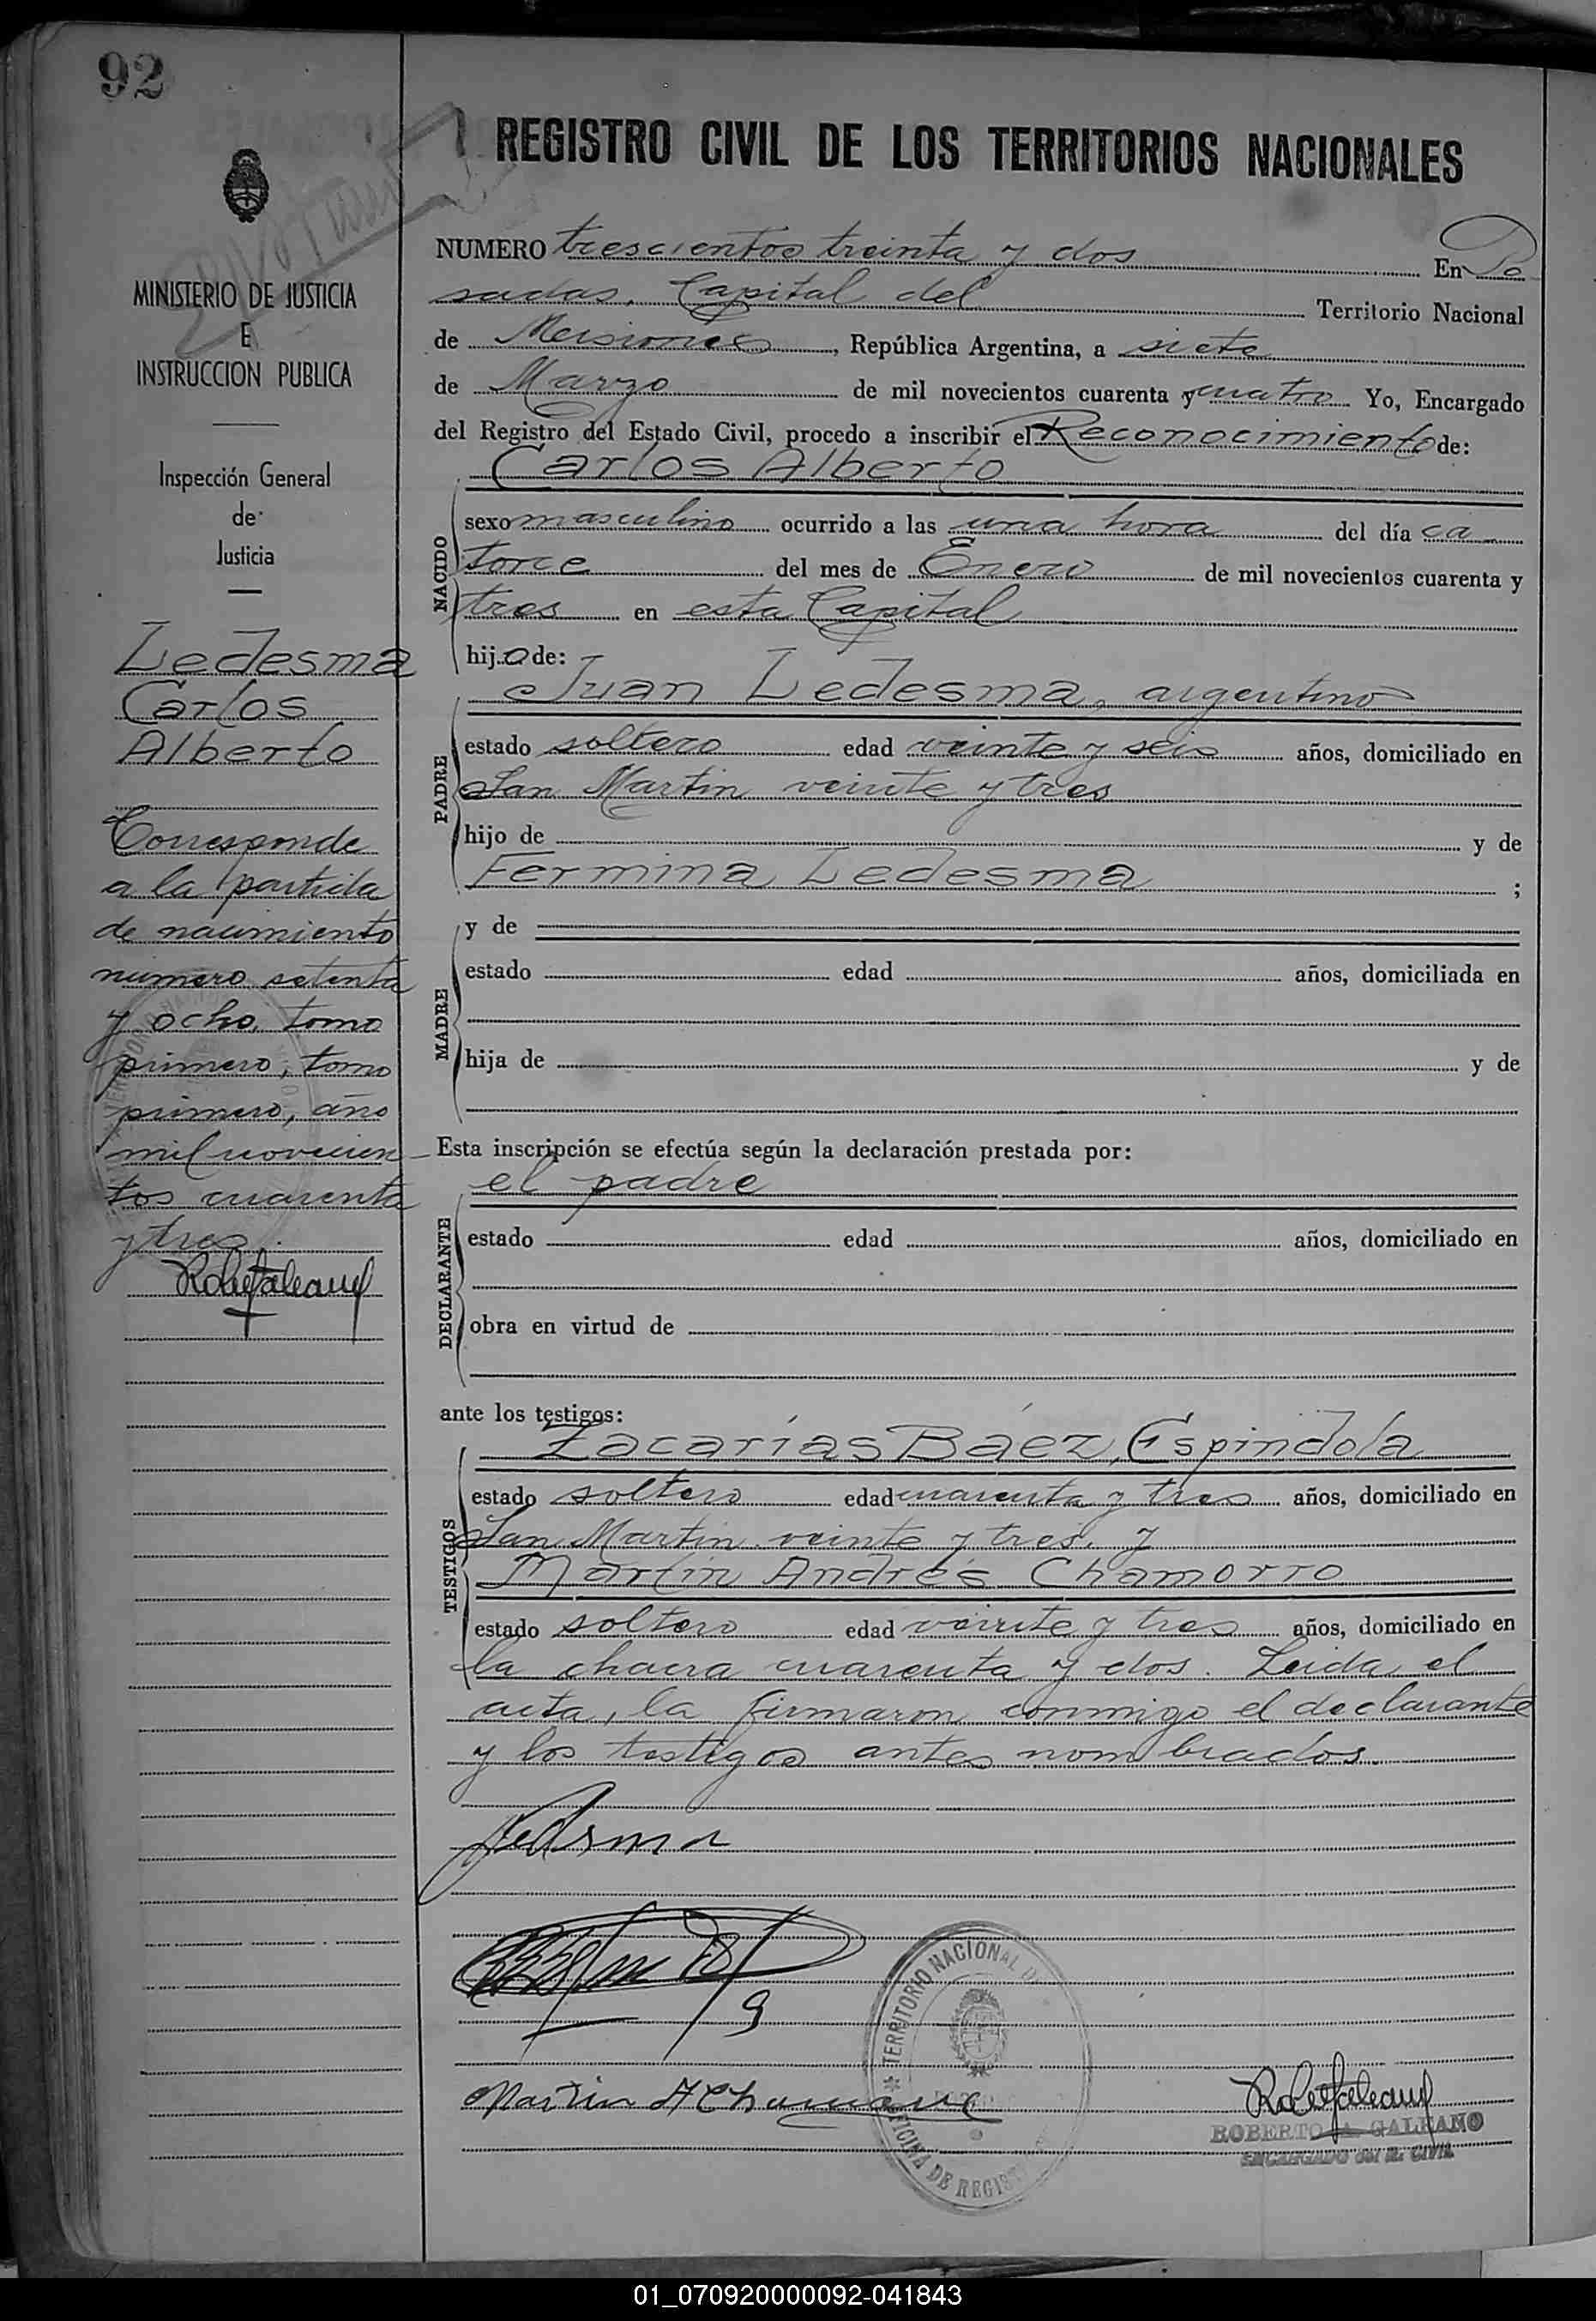 92
REGISTRO CIVIL DE LOS TERRITORIOS NACIONALES
MINISTERIO DE JUSTICIA
E
INSTRUCCION PUBLICA
Inspección General
de
Justicia
Ledesma
Carlos
Alberto
Corresponde
a la partida
de nacimiento
número setenta
y ocho, tomo
primero, tomo
primero, año
mil novecien
tos cuarenta
y tres.
NUMERO trescientos treinta y dos En Po
sadas, Capital del Territorio Nacional
de Misiones, República Argentina, a siete
de Marzo de mil novecientos cuarenta y cuatro Yo, Encargado
del Registro del Estado Civil, procedo a inscribir el Reconocimiento de:
Carlos Alberto
NACIDO
sexo masculino ocurrido a las una hora del día ca
torce del mes de Enero de mil novecientos cuarenta y
tres en esta Capital
hijo de:
Juan Ledesma, argentino
PADRE
estado soltero edad veinte y seis años, domiciliado en
San Martin veinte y tres
hijo de y de
Fermina Ledesma ;
MADRE
y de
estado edad años, domiciliada en
hija de y de
Esta inscripción se efectúa según la declaración prestada por:
el padre
DECLARANTE
estado edad años, domiciliado en
obra en virtud de
ante los testigos:
Zacarías Báez, Espindola
TESTIGOS
estado soltero edad cuarenta y tres años, domiciliado en
San Martin veinte y tres. y
Martín Andrés Chamorro
estado soltero edad veinte y tres años, domiciliado en
la chacra cuarenta y dos. Leida el
acta, la firmaron conmigo el declarante
y los testigos antes nombrados.
Ledesma
TERRITORIO NACIONAL DE
OFICINA DE REGIST
Martin A Chamorro
ROBERTO A. GALEANO
ENCARGADO del R. CIVIL
01_070920000092-041843